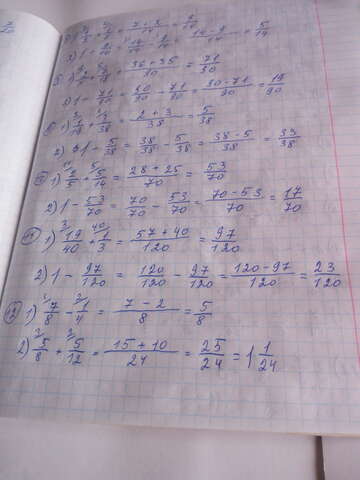 2) 1 - 9/14 = 14/14 - 9/14 = (14-9)/14 = 5/14
(36+35)/90 = 71/90
2) 1 - 71/90 = 90/90 - 71/90 = (90-71)/90 = 19/90
1) 1/19 + 3/38 = (2+3)/38 = 5/38
2) 1 - 5/38 = 38/38 - 5/38 = (38-5)/38 = 33/38
1) 2/5 + 5/14 = (28+25)/70 = 53/70
2) 1 - 53/70 = 70/70 - 53/70 = (70-53)/70 = 17/70
1) 19/40 + 1/3 = (57+40)/120 = 97/120
2) 1 - 97/120 = 120/120 - 97/120 = (120-97)/120 = 23/120
12 1) 7/8 - 1/4 = (7-2)/8 = 5/8
2) 5/8 + 5/12 = (15+10)/24 = 25/24 = 1 1/24